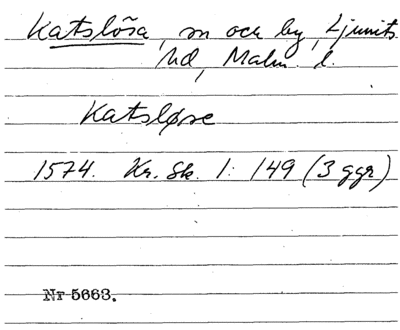 Katslösa, sn och by, Ljunits
hd, Malm. l.
Katsløse
1574. Kr. Sk. 1: 149 (3 ggr)
Nr 5663.